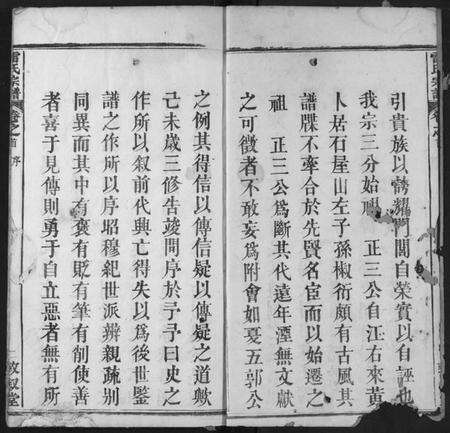 引貴族以誇耀門閭自榮實以自誣也
我宗三分始祖　正三公自江右來黃
人居石屋山左子孫椒衍頗有古風其
譜牒不牽合於先賢名宦而以始遷之
祖　正三公爲斷其代遠年湮無文獻
之可徵者不敢妄爲附會如夏五郭公
之例其得信以傳信疑以傳疑之道歟
己未歲三修告竣問序於予予曰史之
作所以叙前代興亡得失以爲後世鑒
譜之作所以序昭穆紀世派辨親疏别
同異而其中有褒有貶有筆有削使善
者喜于見傳則勇于自立惡者無有所
雷氏宗譜
卷之首　序
敦叙堂